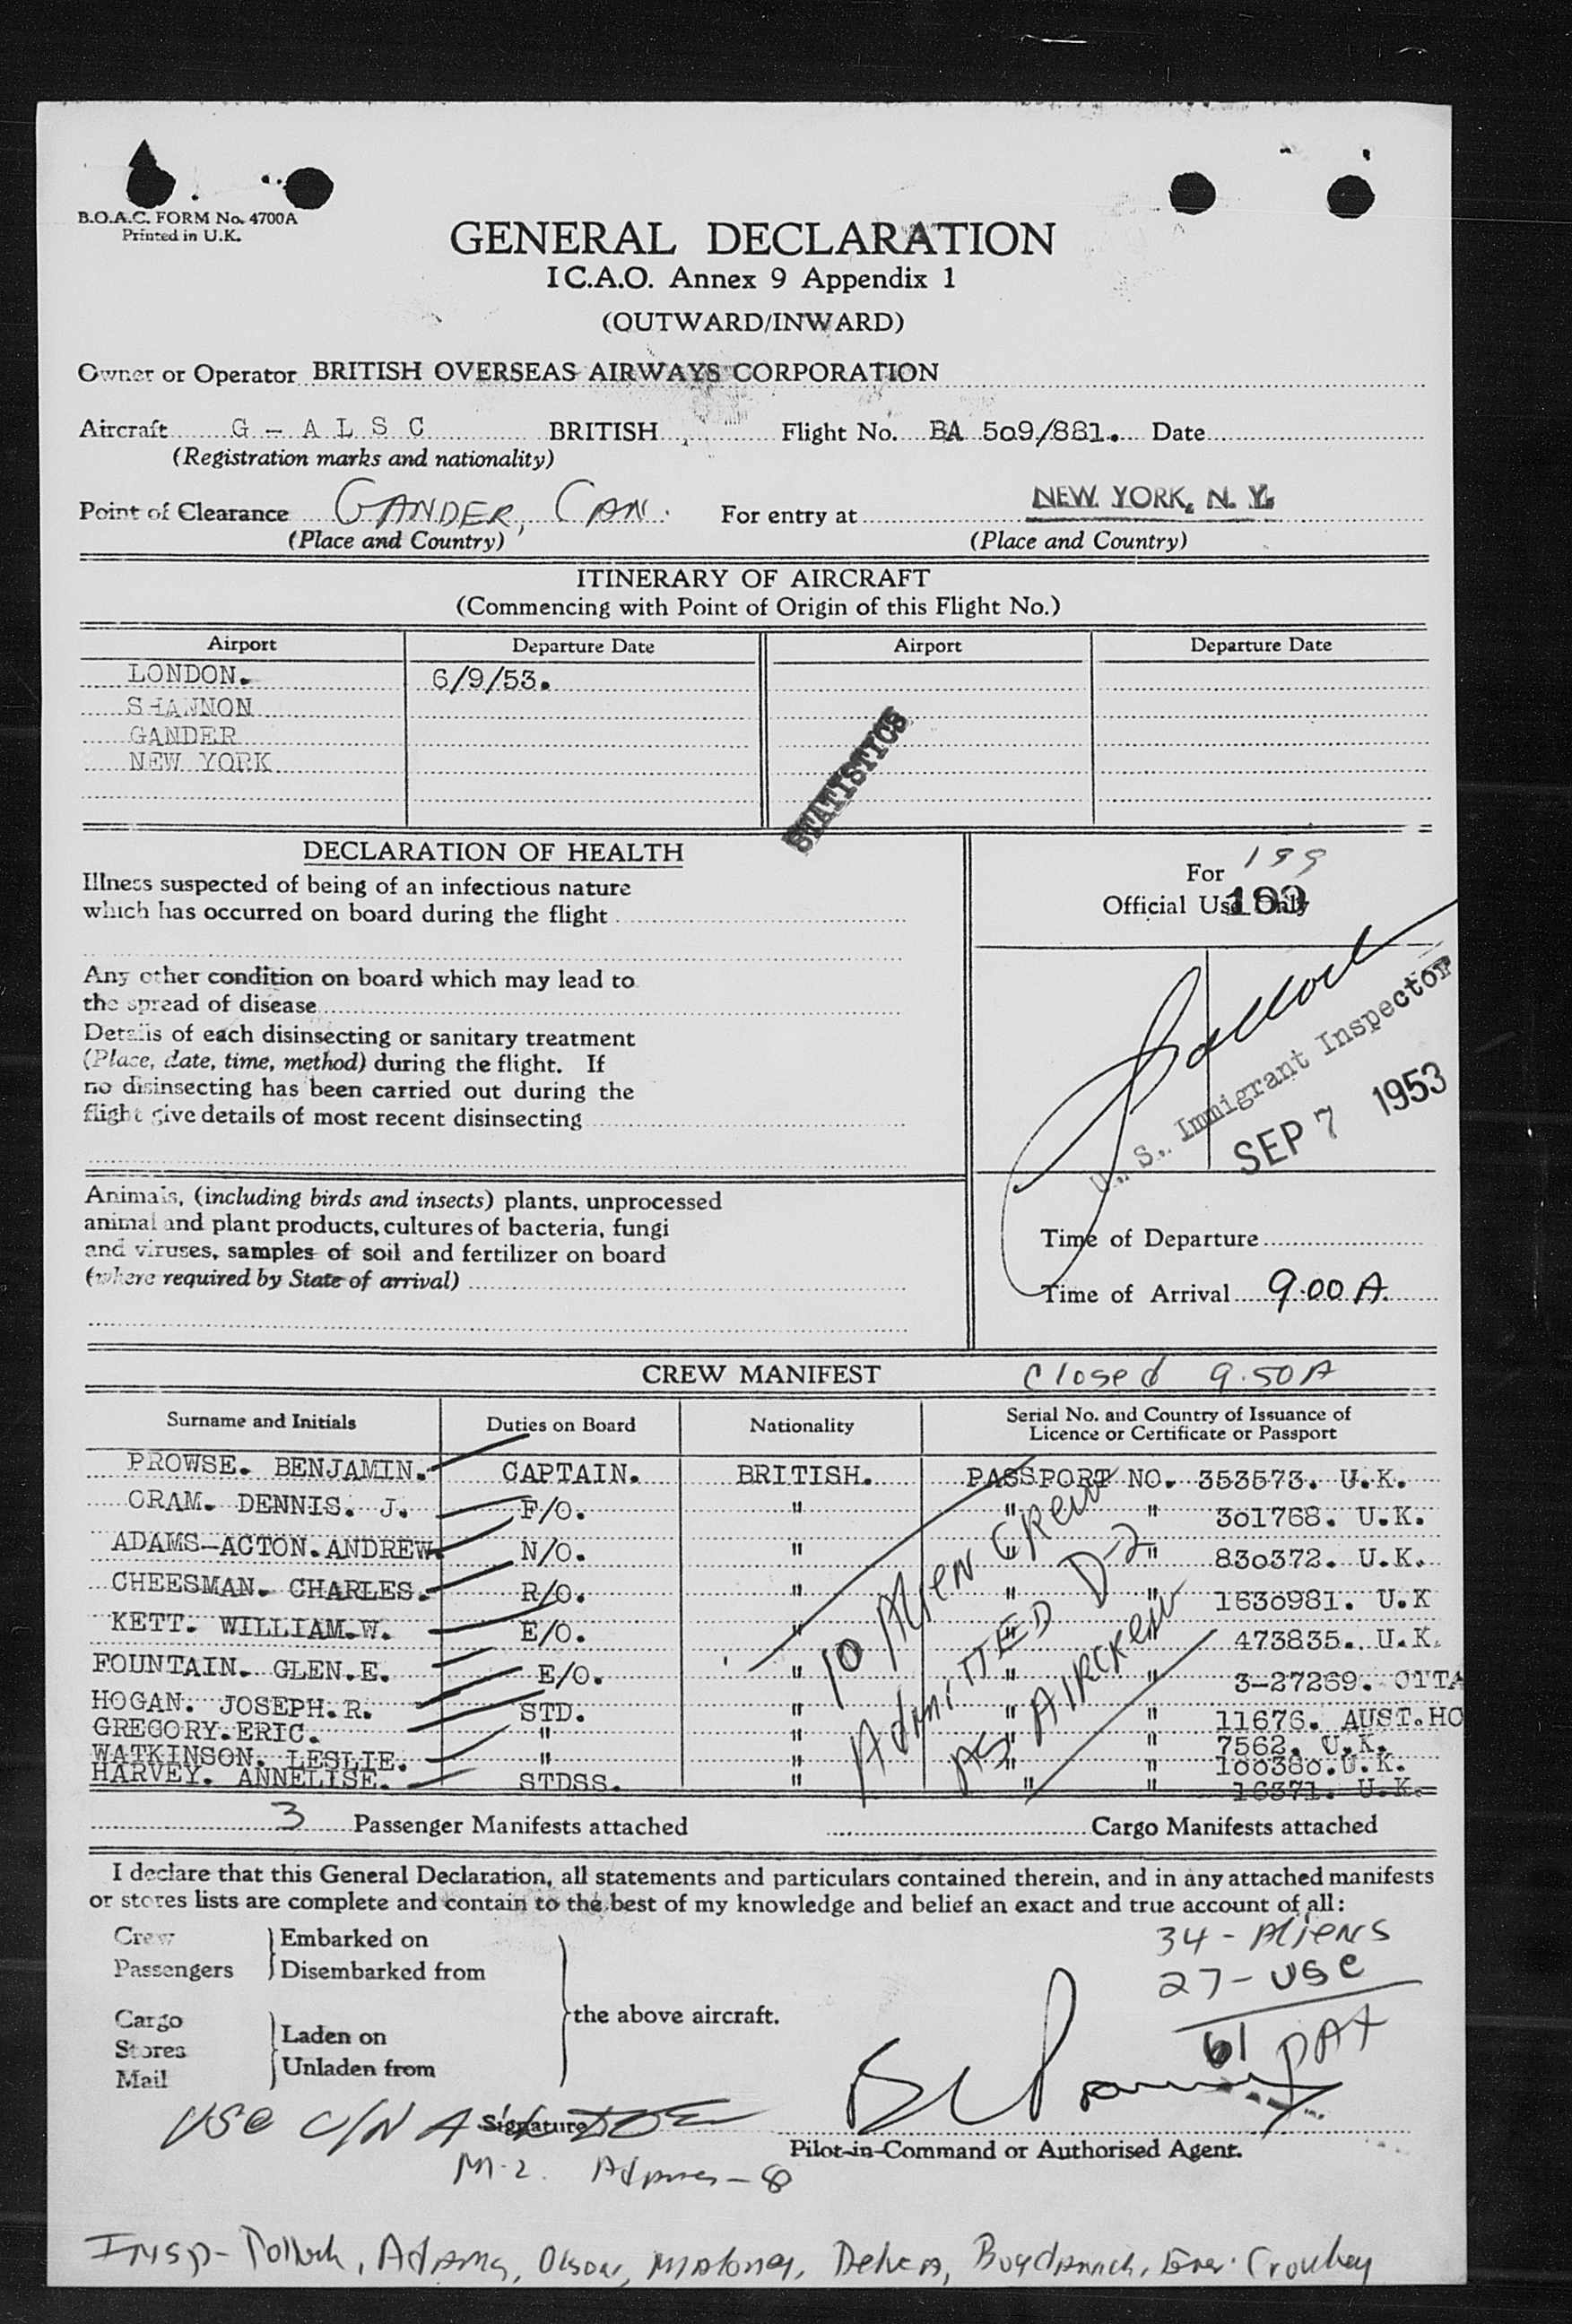 B.O.A.C. FORM No. 4700A
Printed in U.K.
GENERAL DECLARATION
I C.A.O. Annex 9 Appendix 1
(OUTWARD/INWARD)
Owner or Operator BRITISH OVERSEAS AIRWAYS CORPORATION
Aircraft G - A L S C BRITISH Flight No. BA 509/881. Date
(Registration marks and nationality)
Point of Clearance GANDER, CAN. For entry at NEW YORK, N. Y.
(Place and Country) (Place and Country)
ITINERARY OF AIRCRAFT
(Commencing with Point of Origin of this Flight No.)
Airport Departure Date Airport Departure Date
LONDON. 6/9/53.
SHANNON
GANDER
NEW YORK
STATISTICS
DECLARATION OF HEALTH
Illness suspected of being of an infectious nature
which has occurred on board during the flight
Any other condition on board which may lead to
the spread of disease
Details of each disinsecting or sanitary treatment
(Place, date, time, method) during the flight. If
no disinsecting has been carried out during the
flight give details of most recent disinsecting
Animals, (including birds and insects) plants, unprocessed
animal and plant products, cultures of bacteria, fungi
and viruses, samples of soil and fertilizer on board
(where required by State of arrival)
For 199
Official Use Only
U. S. Immigrant Inspector
SEP 7 1953
Time of Departure
Time of Arrival 9.00 A.
CREW MANIFEST Closed 9.50A
Surname and Initials Duties on Board Nationality Serial No. and Country of Issuance of
Licence or Certificate or Passport
PROWSE. BENJAMIN. CAPTAIN. BRITISH. PASSPORT NO. 353573. U.K.
ORAM. DENNIS. J. F/O. " " " 301768. U.K.
ADAMS-ACTON. ANDREW. N/O. " " " 830372. U.K.
CHEESMAN. CHARLES. R/O. " " " 1630981. U.K
KETT. WILLIAM.W. E/O. " " " 473835. U.K.
FOUNTAIN. GLEN.E. E/O. " " " 3-27269. OTTA
HOGAN. JOSEPH.R. STD. " " " 11676. AUST.HO
GREGORY.ERIC. " " " " 7562. U.K.
WATKINSON. LESLIE. " " " " 100380.U.K.
HARVEY. ANNELISE. STDSS. " " " 16371. U.K.
10 Alien Crew
Admitted D-2
As Aircrew
3 Passenger Manifests attached Cargo Manifests attached
I declare that this General Declaration, all statements and particulars contained therein, and in any attached manifests
or stores lists are complete and contain to the best of my knowledge and belief an exact and true account of all:
Crew Embarked on
Passengers Disembarked from
Cargo
Stores Laden on
Mail Unladen from
the above aircraft.
34 - Aliens
27 - USC
61 PAX
USC
Signature
Pilot-in-Command or Authorised Agent.
M-2. Adams - 8
Insp - Pollock, Adams, Olson, Maloney,